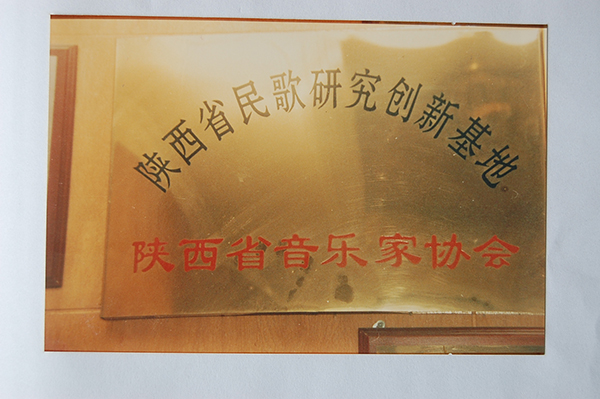 陕西省民歌研究创新基地。
陕西省音乐家协会